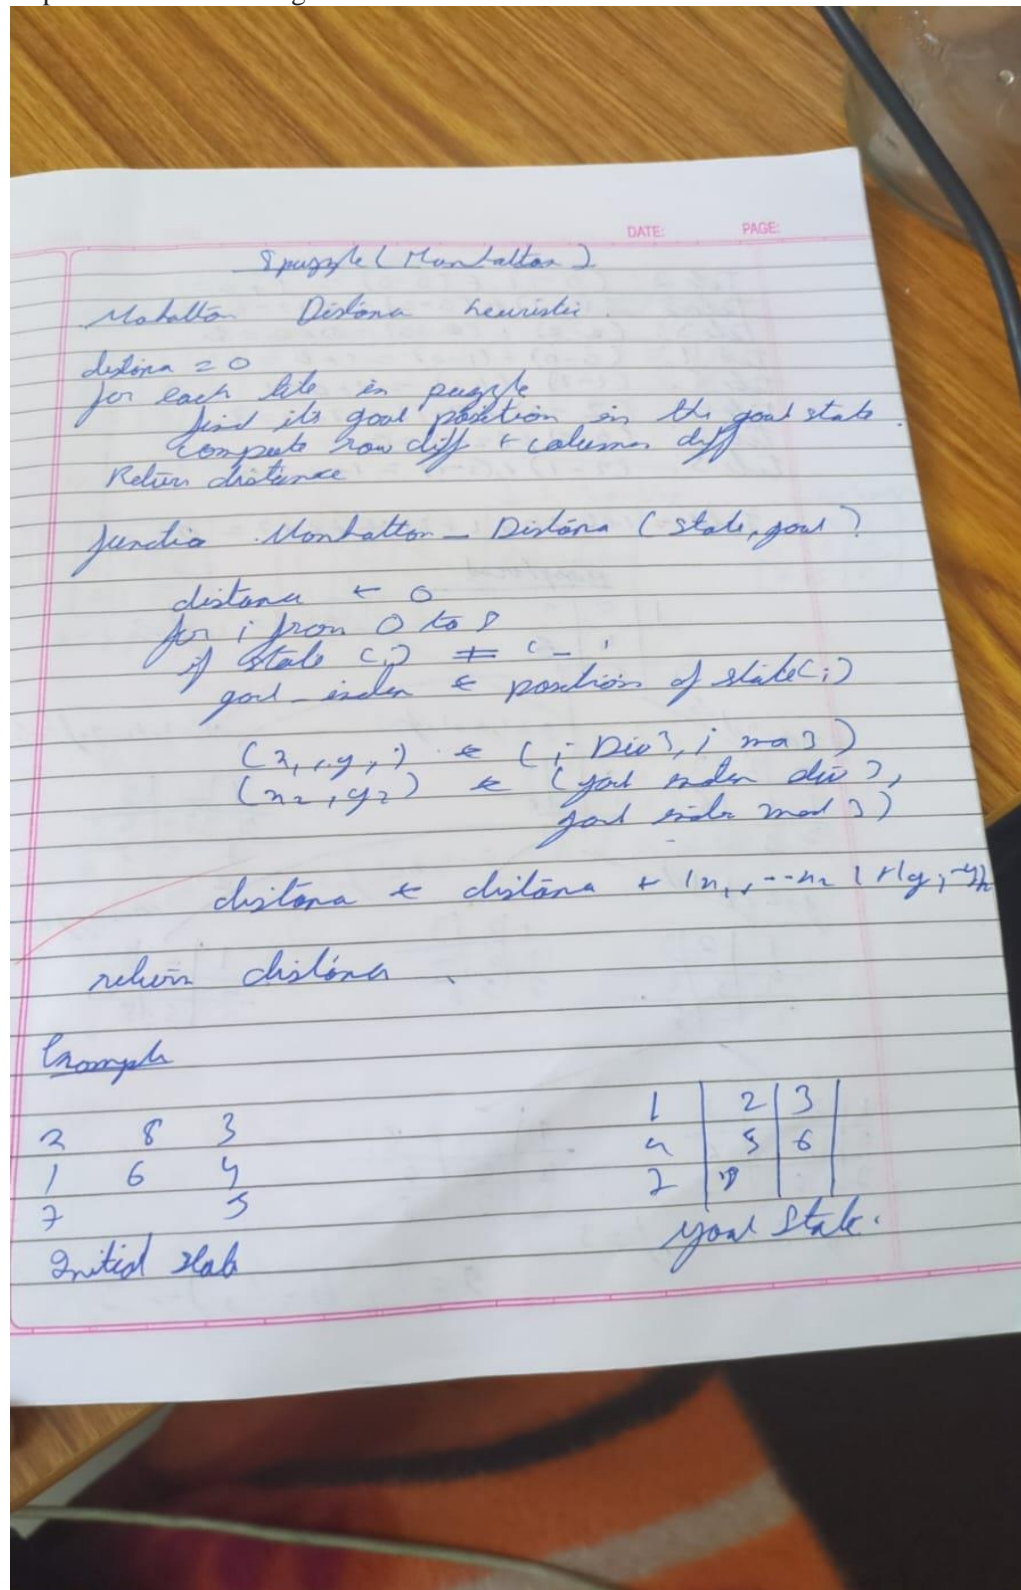 DATE: PAGE:
8 puzzle (Manhattan)
Mahattan Distance heuristic.
distance = 0
for each tile in puzzle
find its goal position in the goal state.
compute row diff + column diff
Return distance
function Manhattan_Distance (state, goal)
distance ← 0
for i from 0 to 8
if state (i) ≠ '_'
goal_index ← position of state(i)
(x1, y1) ← (i Div 3, i mod 3)
(x2, y2) ← (goal index div 3,
goal index mod 3)
distance ← distance + |x1 - x2| + |y1 - y2|
return distance
Example
2 8 3
1 6 4
7 5
Initial state
1 2 3
4 5 6
7 8
goal state.